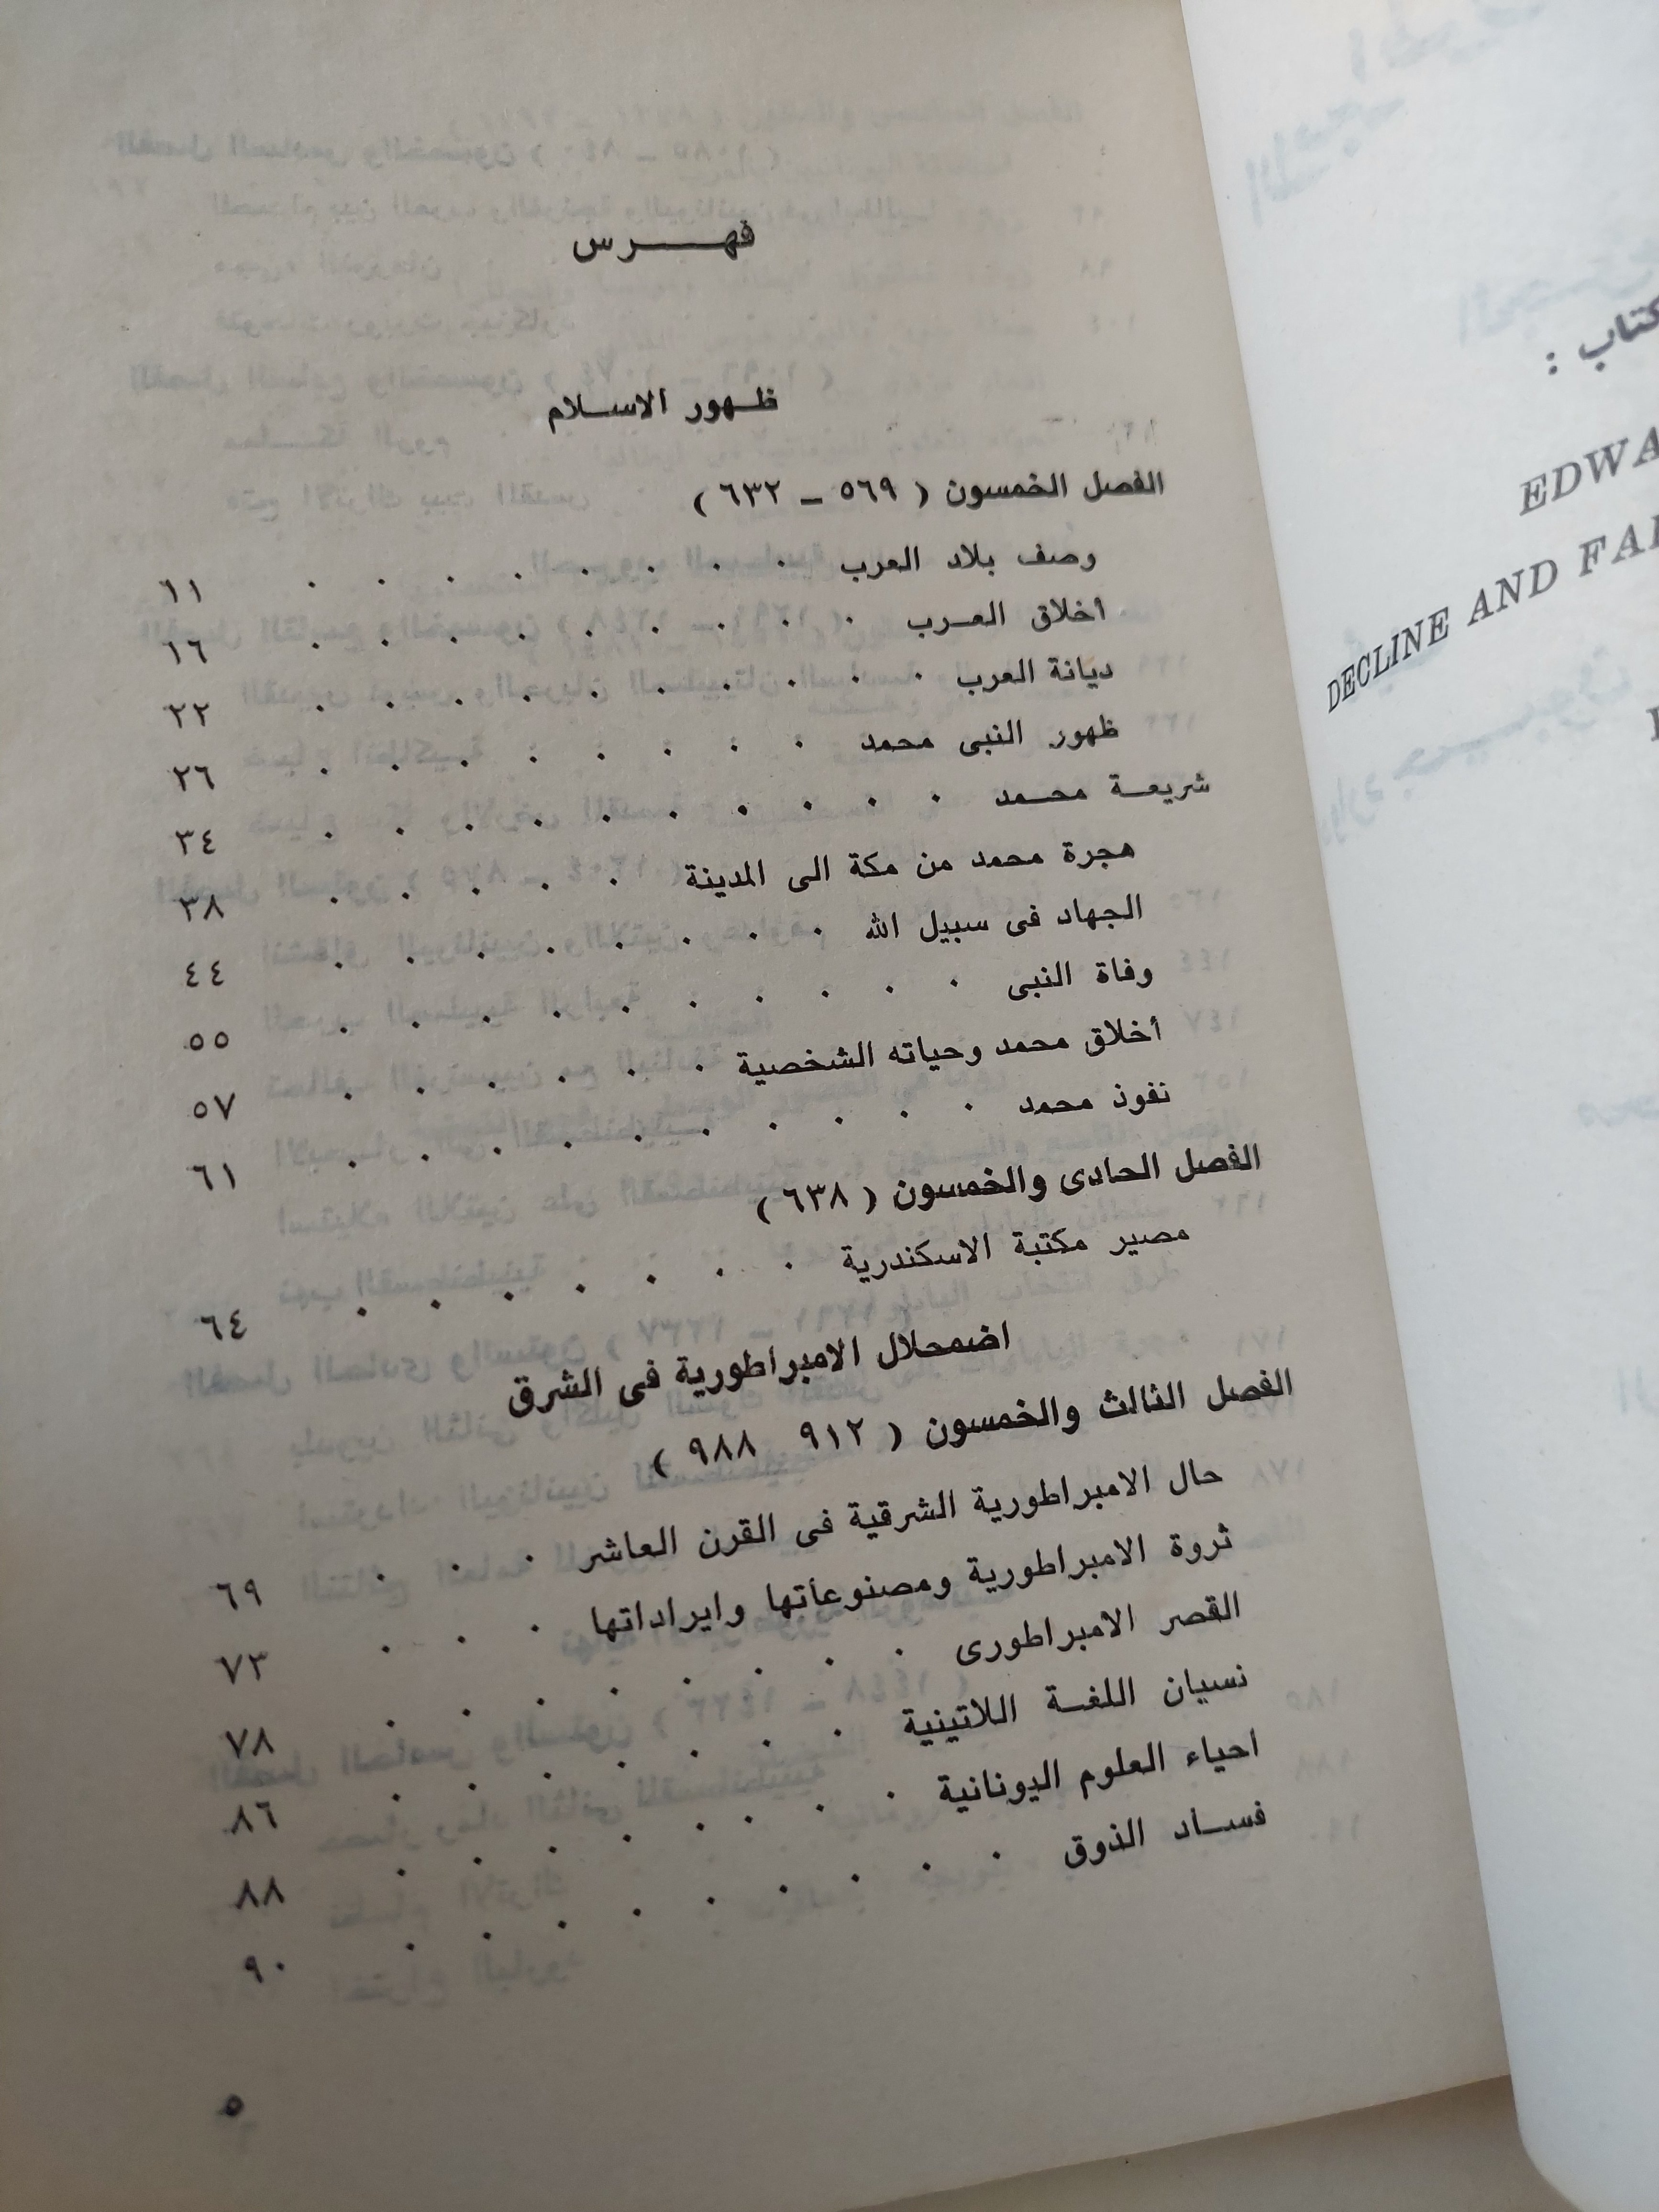 فهرس
ظهور الاسلام
الفصل الخمسون ( ٥٦٩ – ٦٣٢ )
وصف بلاد العرب . . . . . . . . ١١
أخلاق العرب . . . . . . . . . ١٦
ديانة العرب . . . . . . . . . ٢٢
ظهور النبى محمد . . . . . . . . ٢٦
شريعة محمد . . . . . . . . . . ٣٤
هجرة محمد من مكة الى المدينة . . . . . ٣٨
الجهاد فى سبيل الله . . . . . . . . ٤٤
وفاة النبى . . . . . . . . . . ٥٥
أخلاق محمد وحياته الشخصية . . . . . . ٥٧
نفوذ محمد . . . . . . . . . . ٦١
الفصل الحادى والخمسون ( ٦٣٨ )
مصير مكتبة الاسكندرية . . . . . . . ٦٤
اضمحلال الامبراطورية فى الشرق
الفصل الثالث والخمسون ( ٩١٢ ٩٨٨ )
حال الامبراطورية الشرقية فى القرن العاشر . . . ٦٩
ثروة الامبراطورية ومصنوعاتها وايراداتها . . . ٧٣
القصر الامبراطورى . . . . . . . . ٧٨
نسيان اللغة اللاتينية . . . . . . . ٨٦
احياء العلوم اليونانية . . . . . . . . ٨٨
فساد الذوق . . . . . . . . . ٩٠
٥
كتاب :
EDWA
DECLINE AND FAL